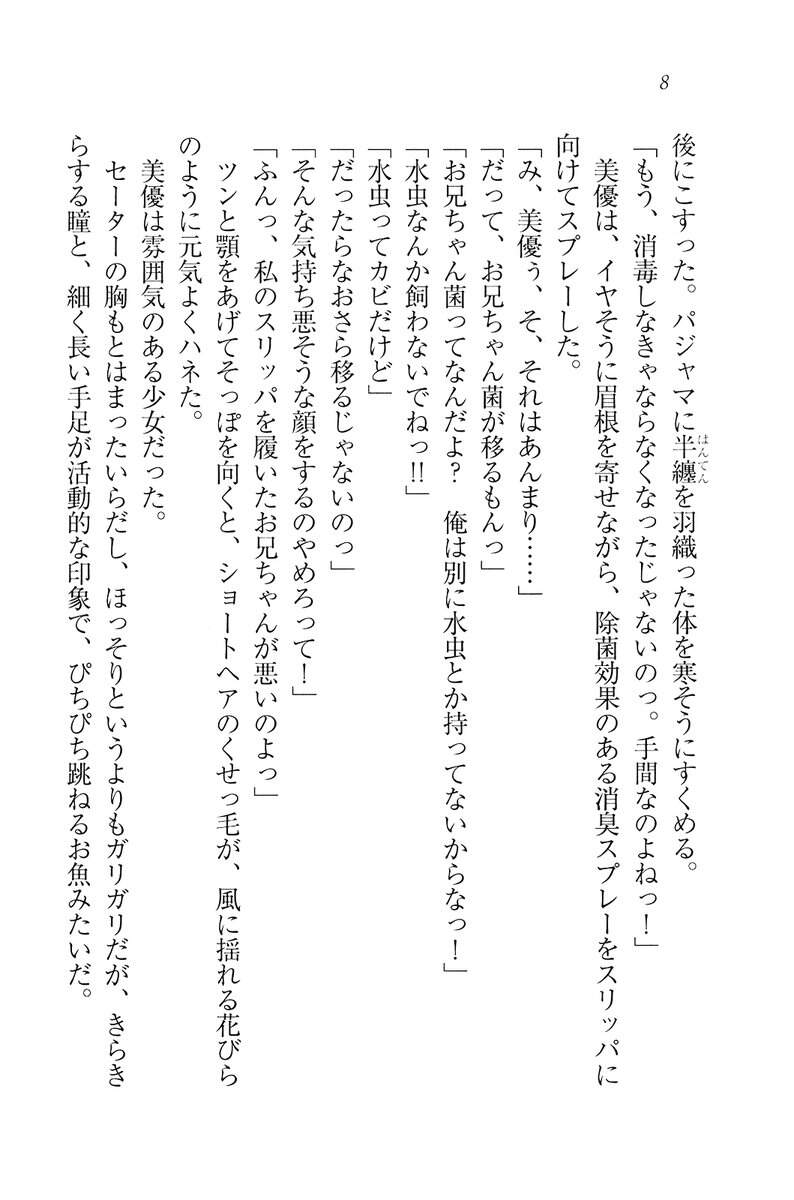 8
後にこすった。パジャマに半纏を羽織った体を寒そうにすくめる。
はんてん
「もう、消毒しなきゃならなくなったじゃないのっ。手間なのよねっ！」
美優は、イヤそうに眉根を寄せながら、除菌効果のある消臭スプレーをスリッパに
向けてスプレーした。
「み、美優ぅ、そ、それはあんまり……」
「だって、お兄ちゃん菌が移るもんっ」
「お兄ちゃん菌ってなんだよ？　俺は別に水虫とか持ってないからなっ！」
「水虫なんか飼わないでねっ!!」
「水虫ってカビだけど」
「だったらなおさら移るじゃないのっ」
「そんな気持ち悪そうな顔をするのやめろって！」
「ふんっ、私のスリッパを履いたお兄ちゃんが悪いのよっ」
ツンと顎をあげてそっぽを向くと、ショートヘアのくせっ毛が、風に揺れる花びら
のように元気よくハネた。
美優は雰囲気のある少女だった。
セーターの胸もとはまったいらだし、ほっそりというよりもガリガリだが、きらき
らする瞳と、細く長い手足が活動的な印象で、ぴちぴち跳ねるお魚みたいだ。